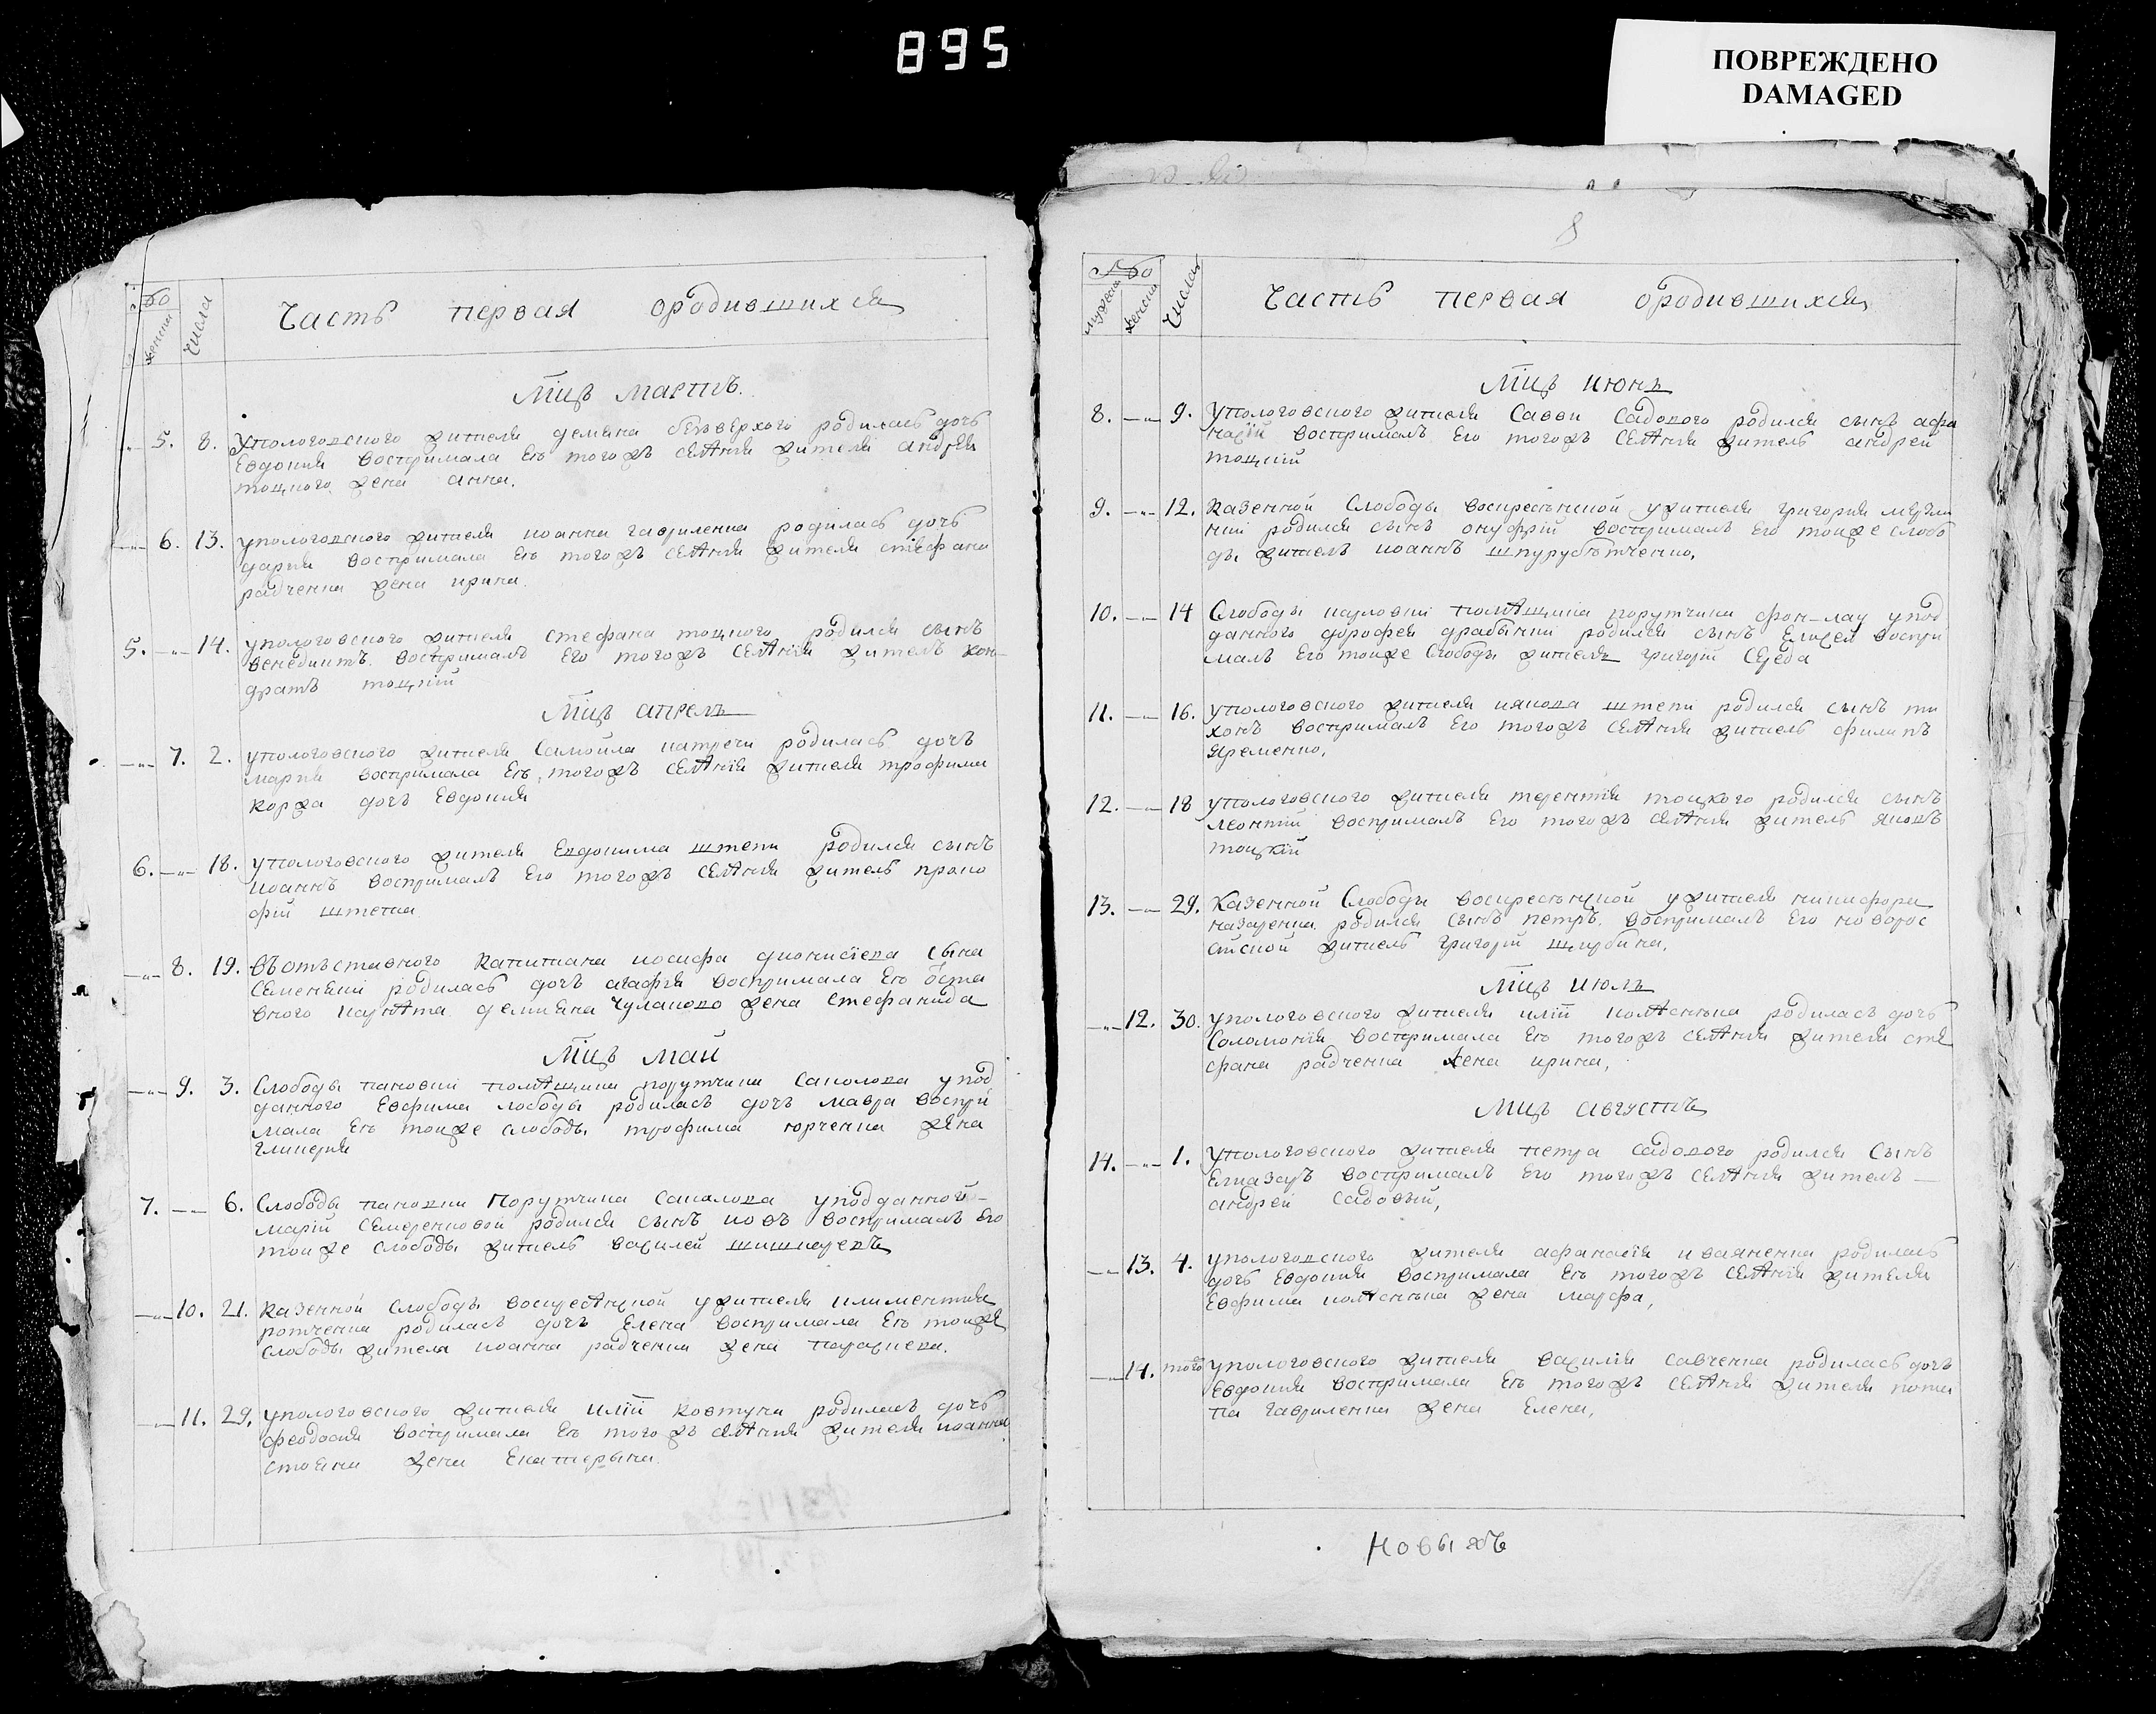 895
ПОВРЕЖДЕНО
DAMAGED
женска
числа
Часть первая ородившихся
Мцъ мартъ.
5. 8. Упологовского жителя демяна безверхого родилась дочъ
Евдокия воспримала Ея тогожъ селѣния жителя андрея
тоцкого жена анна.
6. 13. упологовского жителя иоанна гавриленка родилась дочъ
дария воспримала Ея тогожъ селѣния жителя стефана
радченка жена ирина.
5. 14. упологовского жителя стефана тоцкого родился сынъ
венедиктъ воспрималъ Его тогожъ селѣния жителъ кон-
дратъ тоцкий
Мцъ апрель
7. 2. упологовского жителя Самойла катречи родилась дочъ
мария воспримала Ея тогожъ селѣния жителя трофима
коржа дочъ Евдокия
6. 18. упологовского жителя Евдокима штепи родился сынъ
иоаннъ воспрималъ Его тогожъ селѣния жителъ проко
фій штепа
8. 19. въотъставного капитана иосифа дионисиева сына
родилась дочъ агафия воспримала Ею
вного жена Стефанида
Мцъ май
9. 3. Слободы пановки помѣщика порутчика Саколова упод
данного Евфима лободы родилась дочъ мавра воспри
мала Ея тоиже слободы трофима юрченка жена
гликерия
7. 6. Слободы пановки Порутчика Сакалова упод данной
марій Семеренковой родился сынъ иовъ воспрималъ Его
тоиже слободы жителъ василей
10. 21. казенной слободы воскресѣнской ужителя климентия
родилась дочъ Елена воспримала Ея тоиже
слободы жителя иоанна радченка жена параскева.
11. 29. упологовского жителя иліи ковтуна родилась дочъ
феодосия воспримала Ея тогожъ селѣния жителя иоанна
стояна жена Екатерына.
8
мужеска
женска
числа
Часть первая ородившихся
Мцъ июнъ
8. 9. Упологовского жителя Савви Садового родился сынъ афа
насій воспрималъ Его тогожъ селѣния жителъ андрей
тоцкій
9. 12. казенной Слободы воскресѣнской ужителя григория
родился сынъ онуфрій воспрималъ Его тоиже слобо
ды жителъ иоаннъ
10. 14 Слободы помѣщика порутчика фон-лау упод
данного дорофея родился сынъ Елисей воспри
малъ Его тоиже Слободы жителъ григорій Середа
11. 16. упологовского жителя иякова штепи родился сынъ ти
хонъ воспрималъ Его тогожъ селѣния жителъ филипъ
яременко,
12. 18 упологовского жителя терентия тоцкого родился сынъ
леонтий воспрималъ Его тогожъ селѣния жителъ яковъ
тоцкий
13. 29. Казенной Слободы воскресѣнской ужителя никифора
назаренка родился Сынъ петръ воспрималъ Его новорос
сийской жителъ григорій
Мцъ июль
12. 30. упологовского жителя иліи родилась дочъ
Соломония воспримала Ея тогожъ селѣния жителя сте
фана радченка жена ирина,
Мцъ августъ
14. 1. Упологовского жителя петра садового родился Сынъ
Елиазаръ воспрималъ Его тогожъ селѣния жителъ
андрей Садовый,
13. 4. упологовского жителя афанасия иваненка родилась
дочъ Евдокия воспримала Ея тогожъ селѣния жителя
Евфима жена марфа,
14. того упологовского жителя василия савченка родилась дочъ
Евдокия воспримала Ея тогожъ селѣния жителя пота
па гавриленка жена Елена,